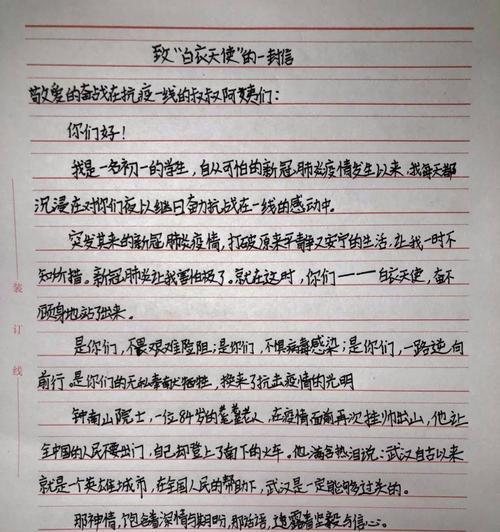 致“白衣天使”的一封信
敬爱的奋战在抗疫一线的叔叔阿姨们：
你们好！
我是一名初一的学生，自从可怕的新冠肺炎疫情发生以来，我每天都
沉浸在对你们夜以继日奋力抗战在一线的感动中。
突发其来的新冠肺炎疫情，打破原来平静又安宁的生活，让我一时不
知所措。新冠肺炎让我害怕极了。就在这时，你们——白衣天使，奋不
顾身地站了出来。
是你们，不畏艰难险阻；是你们，不惧病毒感染；是你们，一路逆向
前行。是你们的无私奉献牺牲，换来了抗击疫情的光明
钟南山院士，一位84岁的耄耋老人，在疫情面前再次挂帅出山，他让
全中国的人民不要出门，自己却登上了南下的火车。他满含热泪说：武汉自古以来
就是一个英雄城市，在全国人民的帮助下，武汉是一定能够过来的。
那神情，饱含着深情与期盼，那话语，透露着坚毅与信心。
装
订
线